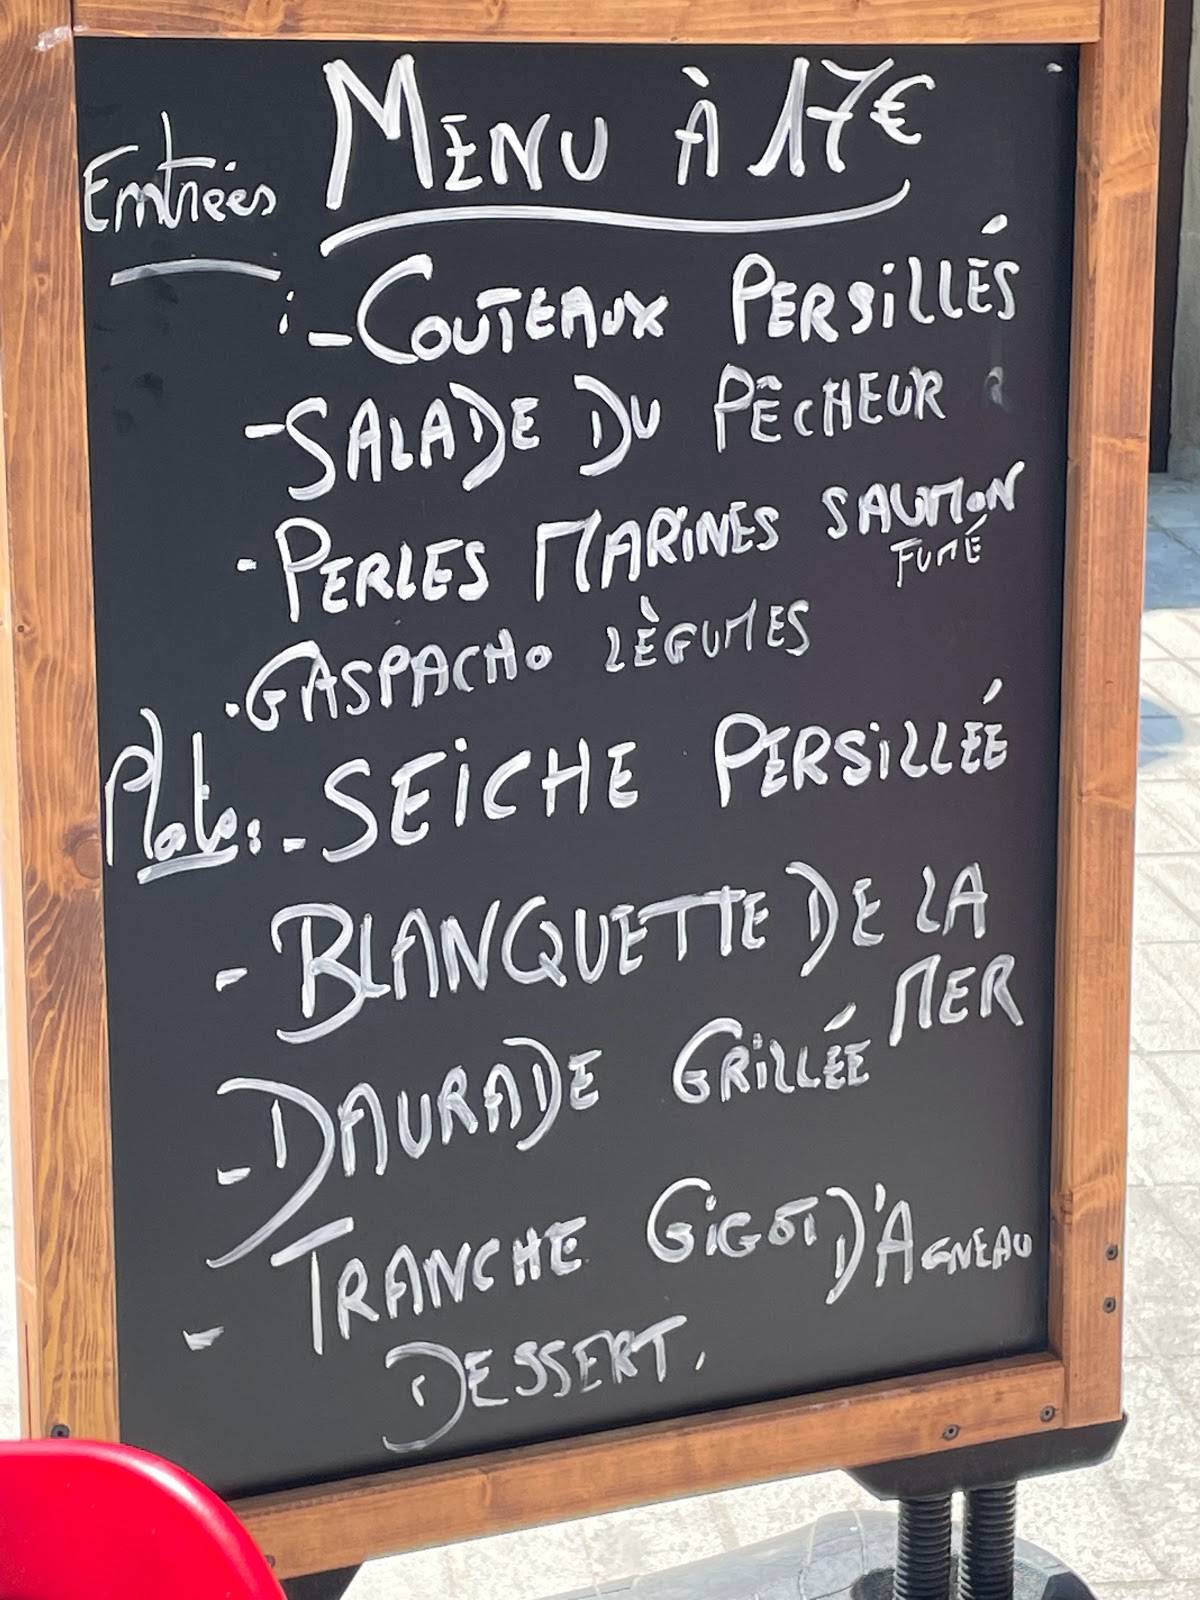 MENU À 17€
Entrées
: - COUTEAUX PERSILLÉS
- SALADE DU PÊCHEUR
- PERLES MARINES SAUMON
FUMÉ
. GASPACHO LÈGUMES
Plats : - SEICHE PERSILLÉE
- BLANQUETTE DE LA
MER
- DAURADE GRILLÉE
- TRANCHE GIGOT D'AGNEAU
DESSERT.